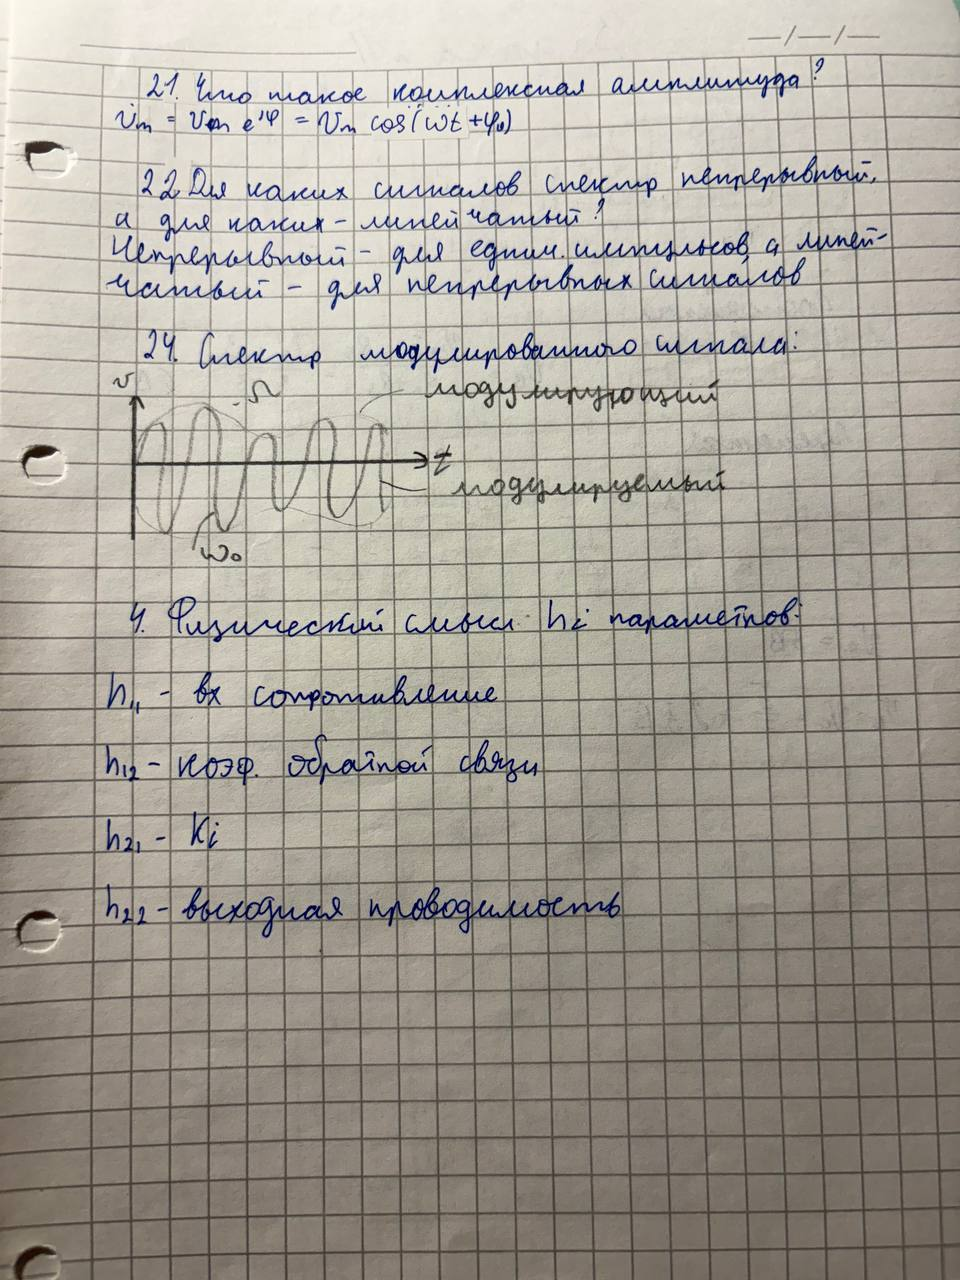 21. Что такое комплексная амплитуда?
U̇m = Um e^jφ = Um cos(ωt + φ₀)
22. Для каких сигналов спектр непрерывный,
а для каких - линейчатый?
Непрерывный - для едпич. импульсов, а линей-
чатый - для непрерывных сигналов
24. Спектр модулированного сигнала:
υ
Ω
модулирующий
t
модулируемый
ω₀
4. Физический смысл hi параметров:
h₁₁ - вх сопротивление
h₁₂ - коэф. обратной связи
h₂₁ - Ki
h₂₂ - выходная проводимость